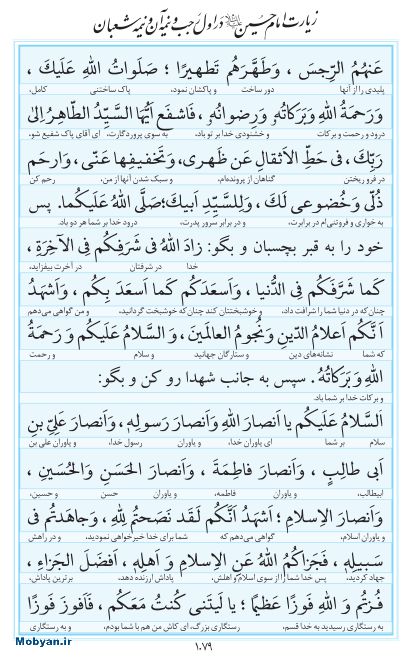 زیارت امام حسین علیه‌السلام در اول رجب و نیمه آن و نیمه شعبان
عَنهُمُ الرِّجسَ ، وَطَهَّرَهُم تَطهيرًا ؛ صَلَواتُ اللهِ عَلَيكَ ،
پلیدی را از آنها دور ساخت و پاکشان نمود، پاک ساختنی کامل،
وَرَحمَةُ اللهِ وَبَرَكاتُهُ وَرِضوانُهُ ، فَاشفَع اَيُّهَا السَّيِّدُ الطّاهِرُ اِلىٰ
درود و رحمت و برکات و خشنودی خدا بر تو باد. به سوی پروردگارت، ای آقای پاک شفیع شو،
رَبِّكَ ، فى حَطِّ الاَثقالِ عَن ظَهرى، وَتَخفيفِها عَنّى ، وَارحَم
در فرو ریختن گناهان از پرونده‌ام، و سبک شدن آنها از من، رحم کن
ذُلّى وَخُضوعى لَكَ ، وَلِلسَّيِّدِ اَبيكَ؛صَلَّى اللهُ عَلَيكُما. پس
به خواری و فروتنی‌ام در برابرت، و در برابر سرور پدرت، درود خدا بر شما هر دو باد.
خود را به قبر بچسبان و بگو: زادَ اللهُ فى شَرَفِكُم فِى الآخِرَةِ ،
خدا در شرفتان در آخرت بیفزاید،
كَما شَرَّفَكُم فِى الدُّنيا ، وَاَسعَدَكُم كَما اَسعَدَ بِكُم ، وَاَشهَدُ
چنان‌که در دنیا شما را شرافت داد، و خوشبختتان کند چنان که خوشبخت گردانید، و من گواهی می‌دهم
اَنَّكُم اَعلامُ الدّينِ وَنُجومُ العالَمينَ ، وَالسَّلامُ عَلَيكُم وَ رَحمَةُ
که شما نشانه‌های دین و ستارگان جهانید و سلام و رحمت
اللهِ وَبَرَكاتُهُ. سپس به جانب شهدا رو کن و بگو:
و برکات خدا بر شما باد.
اَلسَّلامُ عَلَيكُم يا اَنصارَ اللهِ وَاَنصارَ رَسولِهِ، وَاَنصارَ عَلِىِّ بنِ
سلام بر شما ای یاوران خدا، و یاوران رسول خدا، و یاوران علی بن
اَبى طالِبٍ ، وَاَنصارَ فاطِمَةَ ، وَاَنصارَ الحَسَنِ وَالحُسَينِ ،
ابیطالب، و یاوران فاطمه، و یاوران حسن و حسین،
وَاَنصارَ الاِسلامِ ؛ اَشهَدُ اَنَّكُم لَقَد نَصَحتُم لِلّٰهِ ، وَجاهَدتُم فى
و یاوران اسلام، گواهی می‌دهم که شما برای خدا خیرخواهی نمودید، و در راهش
سَبيلِهِ ، فَجَزاكُمُ اللهُ عَنِ الاِسلامِ وَ اَهلِهِ ، اَفضَلَ الجَزاءِ ،
جهاد کردید، پس خدا شما را از سوی اسلام و اهلش، پاداش ارزنده دهد، برترین پاداش،
فُزتُم وَ اللهِ فَوزًا عَظيمًا ؛ يا لَيتَنى كُنتُ مَعَكُم ، فَاَفوزَ فَوزًا
به رستگاری رسیدید به خدا قسم، رستگاری بزرگ، ای کاش من هم با شما بودم، و به رستگاری
۱۰۷۹
Mobyan.ir